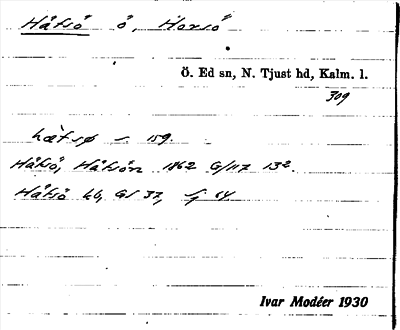 Håtsö ö, Horsö
Ö. Ed sn, N. Tjust hd, Kalm. l.
309
hætsø – 159.
Håtsö, Håtsön 1862 G/117 13².
Håtsö kb, GI 37, s 64
Ivar Modéer 1930